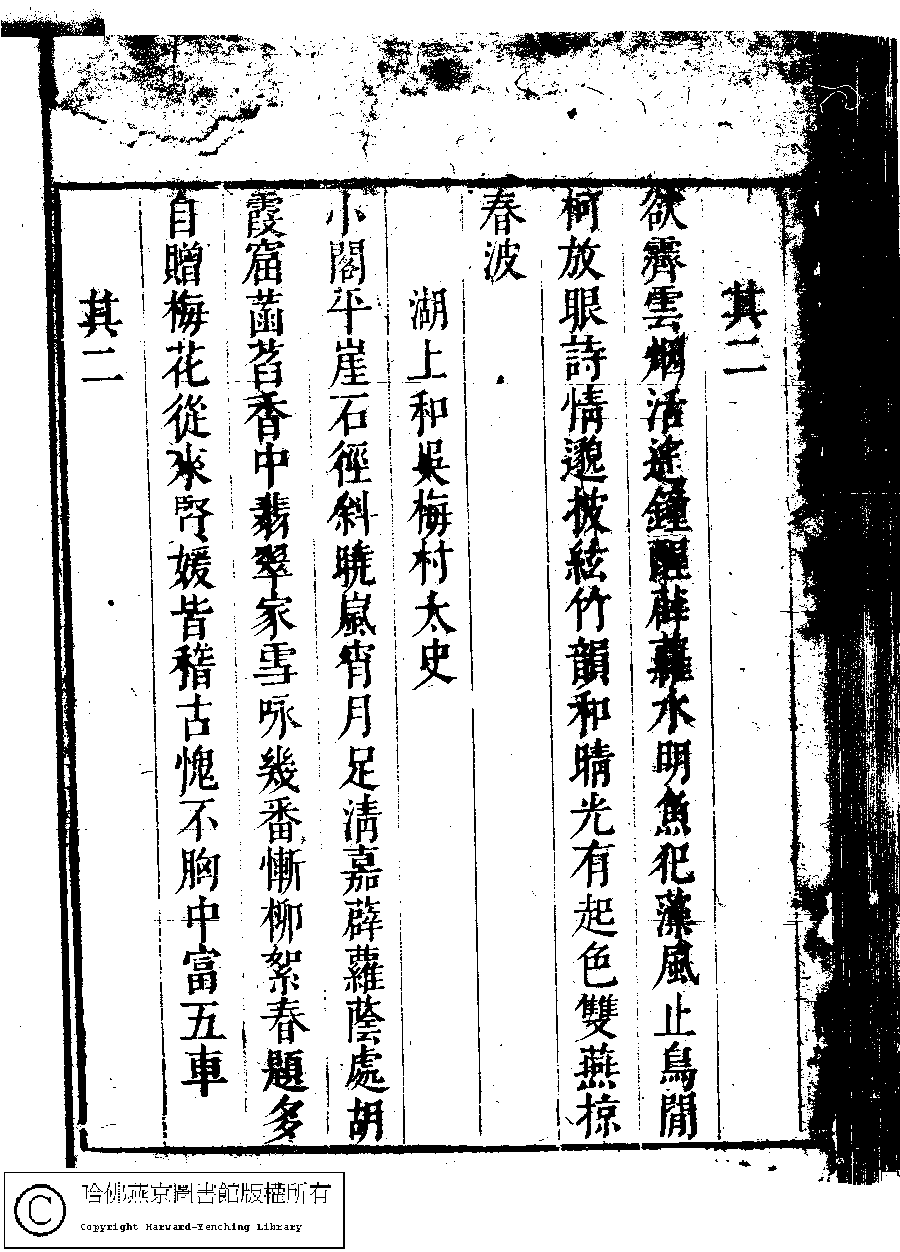 其二
欲霽雲烟活遙鐘醒薜蘿水明魚犯藻風止鳥閒
柯放眼詩情邈披絃竹韻和晴光有起色雙燕掠
春波
湖上和吳梅村太史
小閣平崖石徑斜曉嵐宵月足清嘉薜蘿蔭處胡
霞窟菡萏香中翡翠家雪咏幾番慚柳絮春題多
自贈梅花從來賢媛皆稽古愧不胸中富五車
其二
哈佛燕京圖書館版權所有
Copyright Harvard-Yenching Library